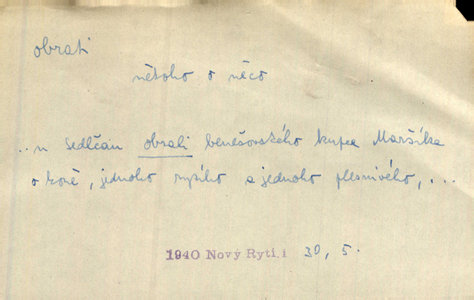 obrati
někoho o něco
..u Sedlčan obrali benešovského kupce Maršíka
o koně, jednoho ryšího a jednoho plesnivého, ...
1940 Nový Rytíři 30, 5.